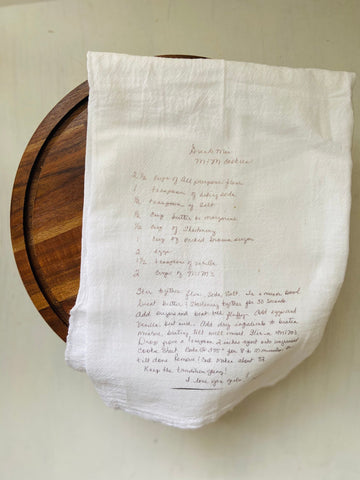 Grand Mas
M&M Cookies
2 ½ Cups of All purpose flour
1 teaspoon of baking soda
½ teaspoon of Salt
½ Cup butter or margarine
½ Cup of Shortening
1 Cup of Packed brown sugar
2 eggs
1 ½ teaspoon of vanilla
2 Cups of M&M's
Stir together flour, Soda, Salt. In a mixer bowl
beat butter & Shortening together for 30 seconds
Add sugar and beat till fluffy. Add eggs and
Vanilla beat well. Add dry ingredients to beaten
mixture, beating till well mixed. Stir in M&M's
Drop from a teaspoon 2 inches apart onto ungreased
Cookie Sheet. Bake @ 375° for 8 to 10 minutes or
till done. Remove & Cool. Makes about
Keep the tradition going!
I love you girls